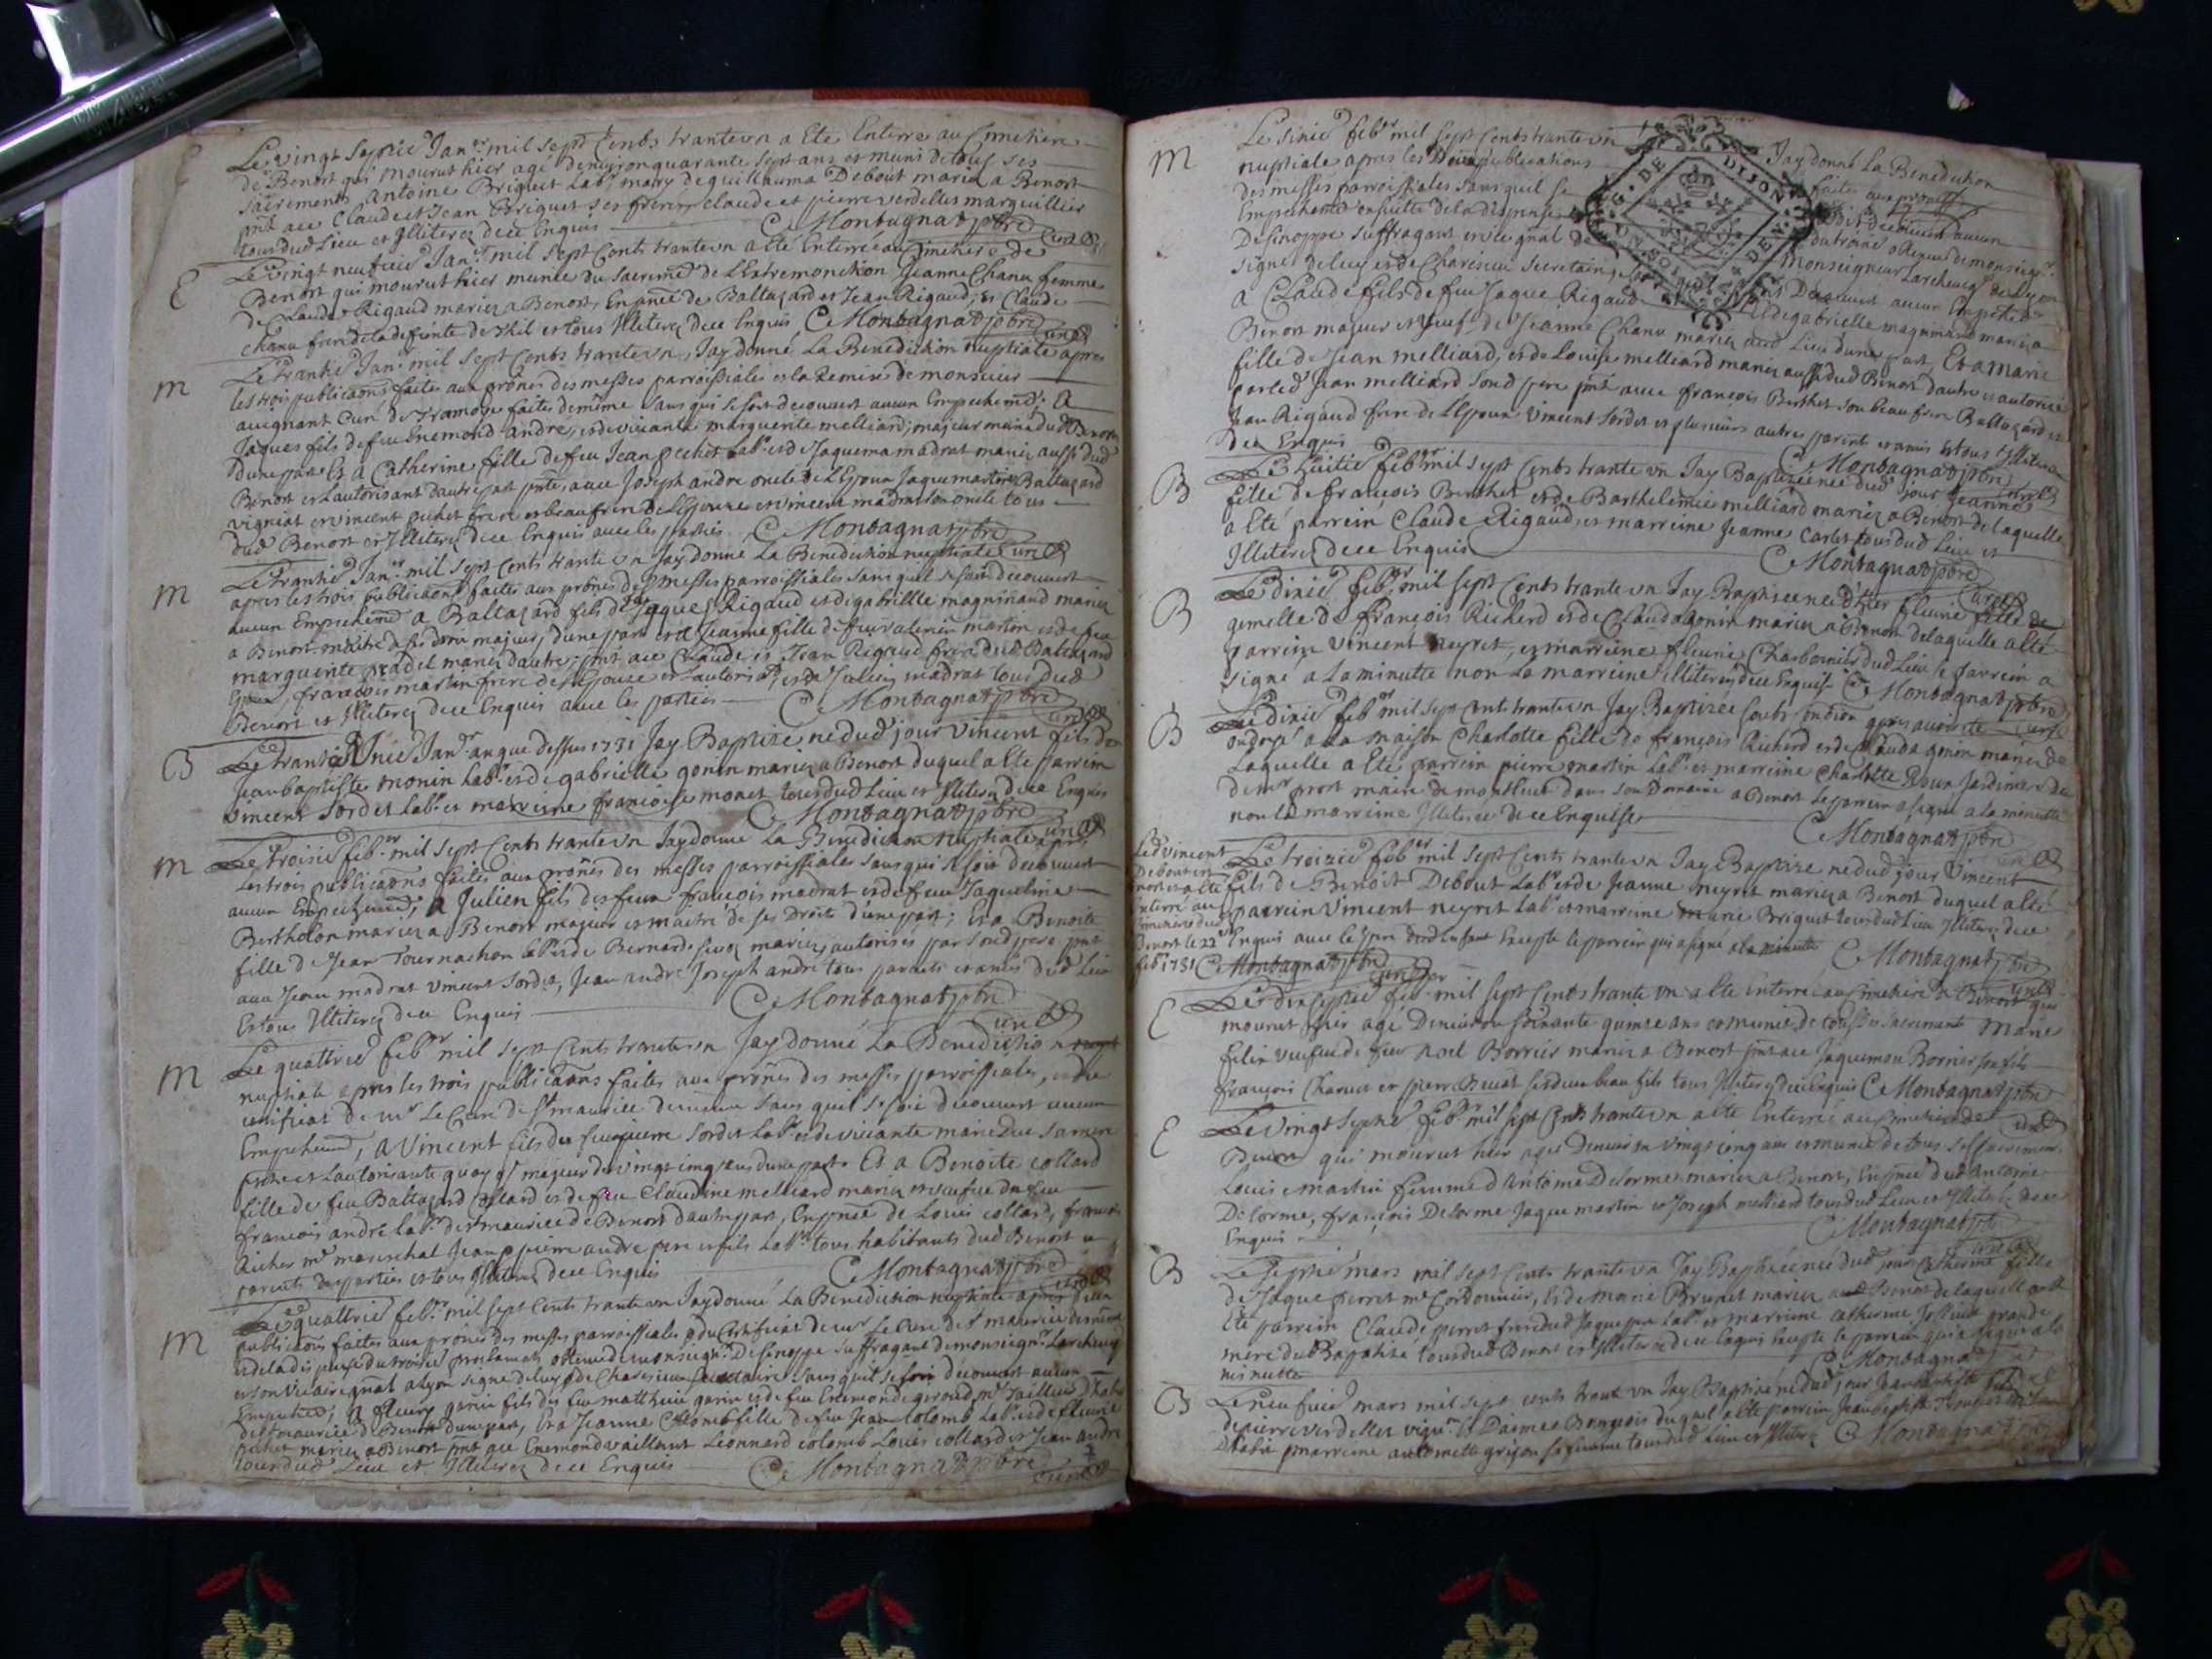 E
Le vingt Septie Janr mil sept Cents trante vn a Ete Enterre au Cimetiere
de Benost qui mourut hier agé denviron quarante Sept ans et muni de tous ses
sacrements Antoine Briquet Labr mary de guillauma Debout mariez a Benost
pnt avec Claude et Jean Briquet ses freres, claude et pierre verdellet marguillier
tous dud Lieu et Illiterez de ce Enquis
C Montagnat pbre curé
E
Le vingt neufvie Janr mil sept Cents trante vn a ete Enterrée au Cimetiere de
Benost qui mourut hier munie du Sacrement de L'Extremonction Jeanne Chanu femme
de Claude Rigaud mariez a Benost, En pnce de Baltazard et Jean Rigaud, et Claude
chanu frere de la defunte et tous Illiterez de ce Enquis C Montagnat pbre curé
m
Le Trantie Janr mil sept Cents trante vn Jay donné La Benediction nuptiale apres
les trois publicaons faites aux prônes des messes parroissiales et la Remise de monsieur
Curé de Tramoye faites de même sans qui se soit decouvert aucun Empechemt; a
Jaques fils de feu Enemond andre, et de vivante marguerite melliard; majeur marié dud Benost
dune part Et a Catherine fille de feu Jean pechet Labr et de Jaquema madrat mariez aussi dud
Benost et L'autorisant d'autre part pnts, avec Joseph andre oncle de L'Epoux Jaque martin Baltazard
vigniat et vincent pechet frere et beaufrere de L'Epouse et vincent madrat son oncle tous
dud Benost et Illiterez de ce Enquis avec les parties C Montagnat pbre curé
m
Le Trantie Janr mil sept Cents trante vn Jay donné La Benediction nuptiale
apres les trois publicaons faites aux prônes des messes parroissiales sans quil se soit decouvert
aucun Empechemt a Baltazard fils de Jaques Rigaud et de gabrielle magninand mariez
a Benost maitre de ses droits majeur, dune part et a Jeanne fille de feu valentin martin et de feu
marguerite pradel mariez dautre, pnt avec Claude et Jean Rigaud freres dud Baltazard
Epoux, francois martin frere de L'Epouse et Julien madrat tous dud
Benost et Illiterez de ce Enquis avec les parties
C Montagnat pbre curé
B
Le Trante Vnie Janr an que dessus 1731 Jay Baptizé né dud jour Vincent fils de
Jean baptiste monin Labr et de gabrielle gonin mariez a Benost duquel a ete parrein
Vincent Sordet Labr et marreine francoise monet tous dud Lieu et Illiterez de ce Enquis
C Montagnat pbre curé
m
Le Troisie febr mil sept Cents trante vn Jay donné La Benediction Nuptiale apres
Les trois publicaons faites aux prônes des messes parroissiales sans qui se soit decouvert
aucun Empechemt, a Julien fils des feux francois madrat et de feue Jaquelme
Bertholon mariez a Benost majeur et maitre de ses Droits d'une part; Et a Benoite
fille de Jean Tournachon Labr et de Bernarde mariez, autorisés par Sond pere pnt
avec Jean madrat vincent Sordet, Jean andre Joseph andre tous parents et amis dud Lieu
Et tous Illiterez de ce Enquis
C Montagnat pbre curé
m
Le quattrie febr mil sept Cents trante vn Jay donné La Benediction
nuptiale apres les trois publicaons faites aux prônes des messes parroissiales, et le
certificat de mr Le Curé de st maurice de même sans quil se soit decouvert aucun
Empechemt, a Vincent fils de feu pierre Sordet Labr et de vivante marie sa mere
pnte et L'autorisante quoy q majeur de vingt cinq ans dune part. Et a Benoite collard
fille de feu Baltazard Collard et de feu Claudine melliard mariez et veufve de feu
francois andre Labr de st maurice de Benost d'autre part, En pnce de Louis collard, francois
Richer me mareschal Jean pierre andre pere et fils Labrs tous habitants dud Benost et
parents des parties et tous Illiterez de ce Enquis
C Montagnat pbre curé
m
Le quattrie febr mil sept Cents trante vn Jay donné La Benediction nuptiale apres deux
publicaons faites aux prônes des messes parroissiales et du Certificat de mr le Curé de st maurice de même
et de la dispense du troisie proclamat obtenue de monseignr De Sinoppe Suffragant de monseignr Larcheveq
et son vicaire gnal a Lyon signé de luy et de Charisieux Secretaire Sans quil se soit decouvert aucun
Empechemt; a fleury garin fils de feu matthieu garin et de feu Enemonde geroud me Tailleur dhabis
de st maurice de Benost dune part, Et a Jeanne Colomb fille de feu Jean colomb Labr et de fleurie
pechet mariez a Benost pnt avec Enemond vaillant Leonnard colomb Louis collard et Jean andre
tous dud Lieu et Illiterez de ce Enquis
C Montagnat pbre curé
m
Le Sixie febr mil sept Cents trante vn Jay donné La Benediction
nuptiale apres les Deux publications faites aux prones
des messes parroissiales sans quil se soit decouvert aucun
Empechemt ensuitte de la dispense du troisie obtenue de monseigr
De Sinoppe Suffragant et vic gnal de Monseigneur Larcheveq de Lyon
signé de luy et de Charisieux Secretaire
a Claude fils de feu Jaque Rigaud et de gabrielle magninand mariez a
Benost majeur et veuf de Jeanne Chanu mariez aud Lieu dune part Et a marie
fille de Jean melliard, et de Louise melliard mariez aussi dud Benost dautre et autorisée
par led Jean melliard Sond pere pnt avec francois Berthet son beau frere Baltazard et
Jean Rigaud frere de L'Epoux Vincent Sordet et plusieurs autres parents et amis et tous Illiterez
de ce Enquis
C Montagnat pbre curé
B
Le huitie febr mil sept Cents trante vn Jay Baptizée née dud jour Jeanne
fille de francois Berthet et de Barthelemie melliard mariez a Benost de laquelle
a Eté parrein Claude Rigaud, et marreine Jeanne Carlet tous dud Lieu et
Illiterez de ce Enquis
C Montagnat pbre curé
B
Le dixie febr mil sept Cents trante vn Jay Baptizee née d'hier fleurie fille de
gemelle de francois Richerd et de Clauda gonin mariez a Benost de laquelle a été
parrein Vincent neyret, et marreine fleurie Charbonnier dud Lieu le parrein a
signé a La minutte non La marreine Illiterez de ce Enquise C Montagnat pbre curé
B
Le dixie febr mil sept Cents trante vn Jay Baptizée soubs condion apres avoir ete
ondoyé a La maison Charlotte fille de francois Richerd et de Clauda gonin mariez de
Laquelle a Eté parrein pierre martin Labr et marreine Charlotte
de mr prost dans son Domaine a Benost Le parrein a signé a la minutte
non la marreine Illiterée de ce Enquise
C Montagnat pbre curé
Led vincent
Debout
a été
Enterré au
Cimetiere dud
Benost le 22
febr 1731 C Montagnat pbre curé
Le treizie febr mil sept Cents trante vn Jay Baptize né dud jour Vincent
fils de Benoist Debout Labr et de Jeanne neyret mariez a Benost duquel a été
parrein Vincent neyret Labr et marreine Marie Briquet tous dud Lieu Illiterez de ce
Enquis avec le pere dud Enfant Excepte le parrein qui a signé a la minutte C Montagnat pbre curé
E
Le dix septie febr mil sept Cents trante vn a Ete Enterrée au Cimetiere de Benost qui
mourut hier agé Denviron soixante quinze ans et munie de tous Ses sacrements Marie
felix veufve de feu noel Borrier mariez a Benost pnt avec Jaquemon Borrier son fils
francois Chanut et pierre Buvat ses deux beau fils tous Illiterez de ce Enquis C Montagnat pbre curé
E
Le vingt septie febr mil sept Cents trante vn a Ete Enterrée au Cimetiere de
Benost qui mourut hier agée Denviron vingt cinq ans et munie de tous ses sacremens
Louise martin femme d'Antoine Delorme mariez a Benost, En pnce dud Antoine
Delorme, francois Delorme Jaque martin et Joseph melliard tous dud Lieu et Illiterez de ce
Enquis
C Montagnat pbre curé
B
Le septie mars mil sept Cents trante vn Jay Baptizée née dud jour Catherine fille
de Jaque perret me Cordonnier, et de Marie Brunet mariez aud Benost de laquelle a
Eté parrein Claude perret frere dud Jaque Labr et marreine catherine grande
mere dud Baptizé tous dud Benost et Illiterez de ce Enquis excepté le parrein qui a signé a la
minutte
C Montagnat
B
Le neufvie mars mil sept cents trante vn Jay Baptize né dud jour Jean baptiste fils
de pierre verdellet vignr Et Daimee Bourgeois duquel a ete parrein Jean baptiste
Dhabit marreine antoinette grizon sa femme tous dud Lieu et Illiterez C Montagnat pbre
G. DE DIJON